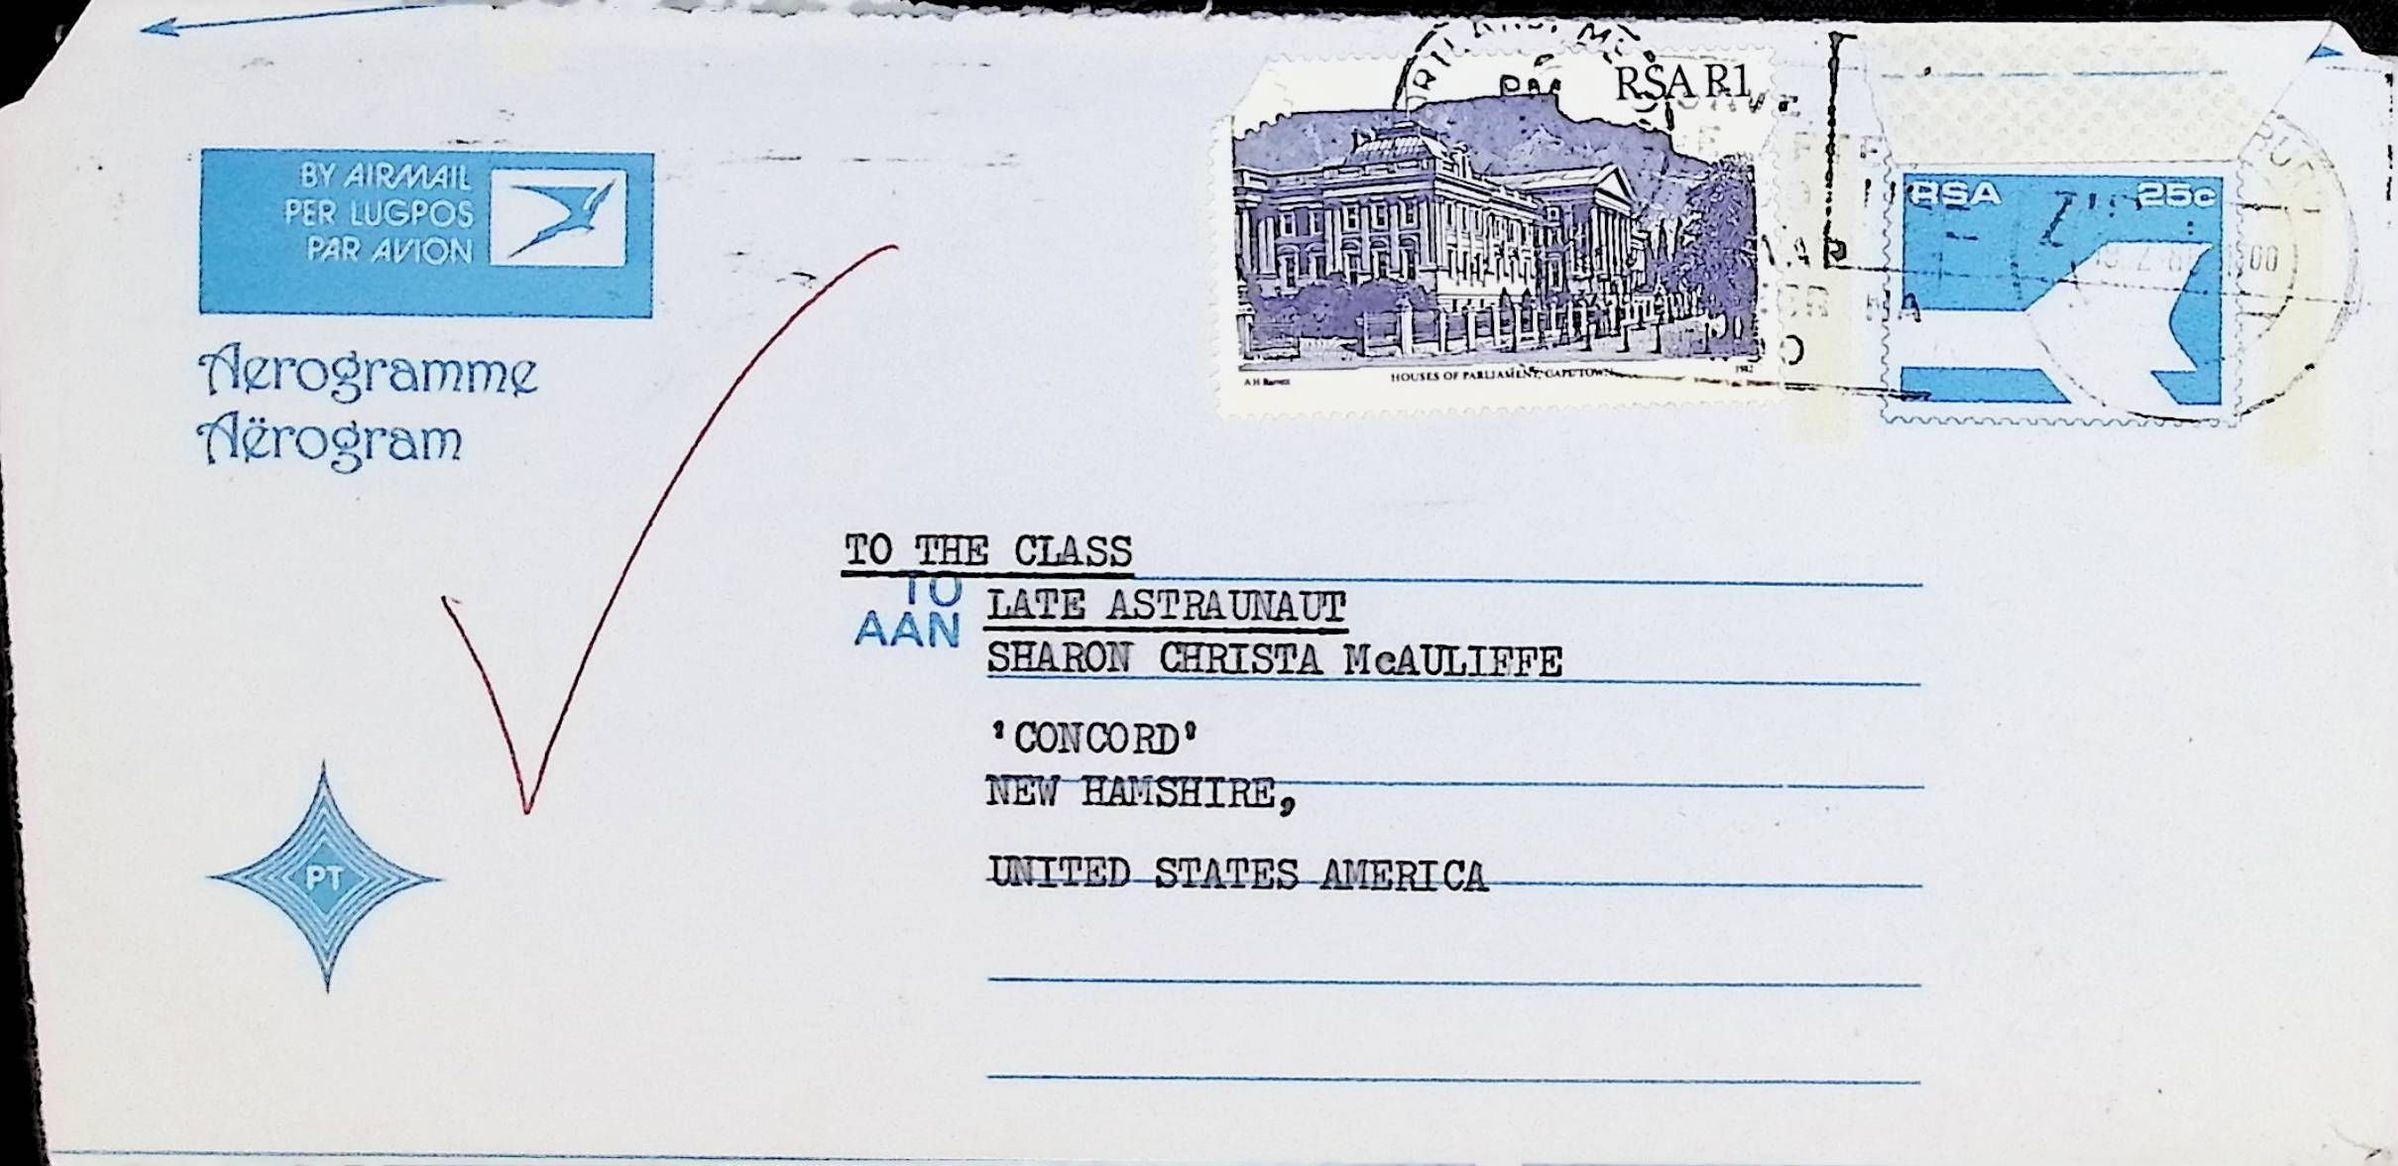 BY AIRMAIL
PER LUGPOS
PAR AVION
Aerogramme
Aërogram
RSA R1
A H Barrett
HOUSES OF PARLIAMENT, CAPE TOWN
1982
RSA 25c
TO THE CLASS
TO
AAN
LATE ASTRAUNAUT
SHARON CHRISTA McAULIFFE
'CONCORD'
NEW HAMSHIRE,
UNITED STATES AMERICA
PT